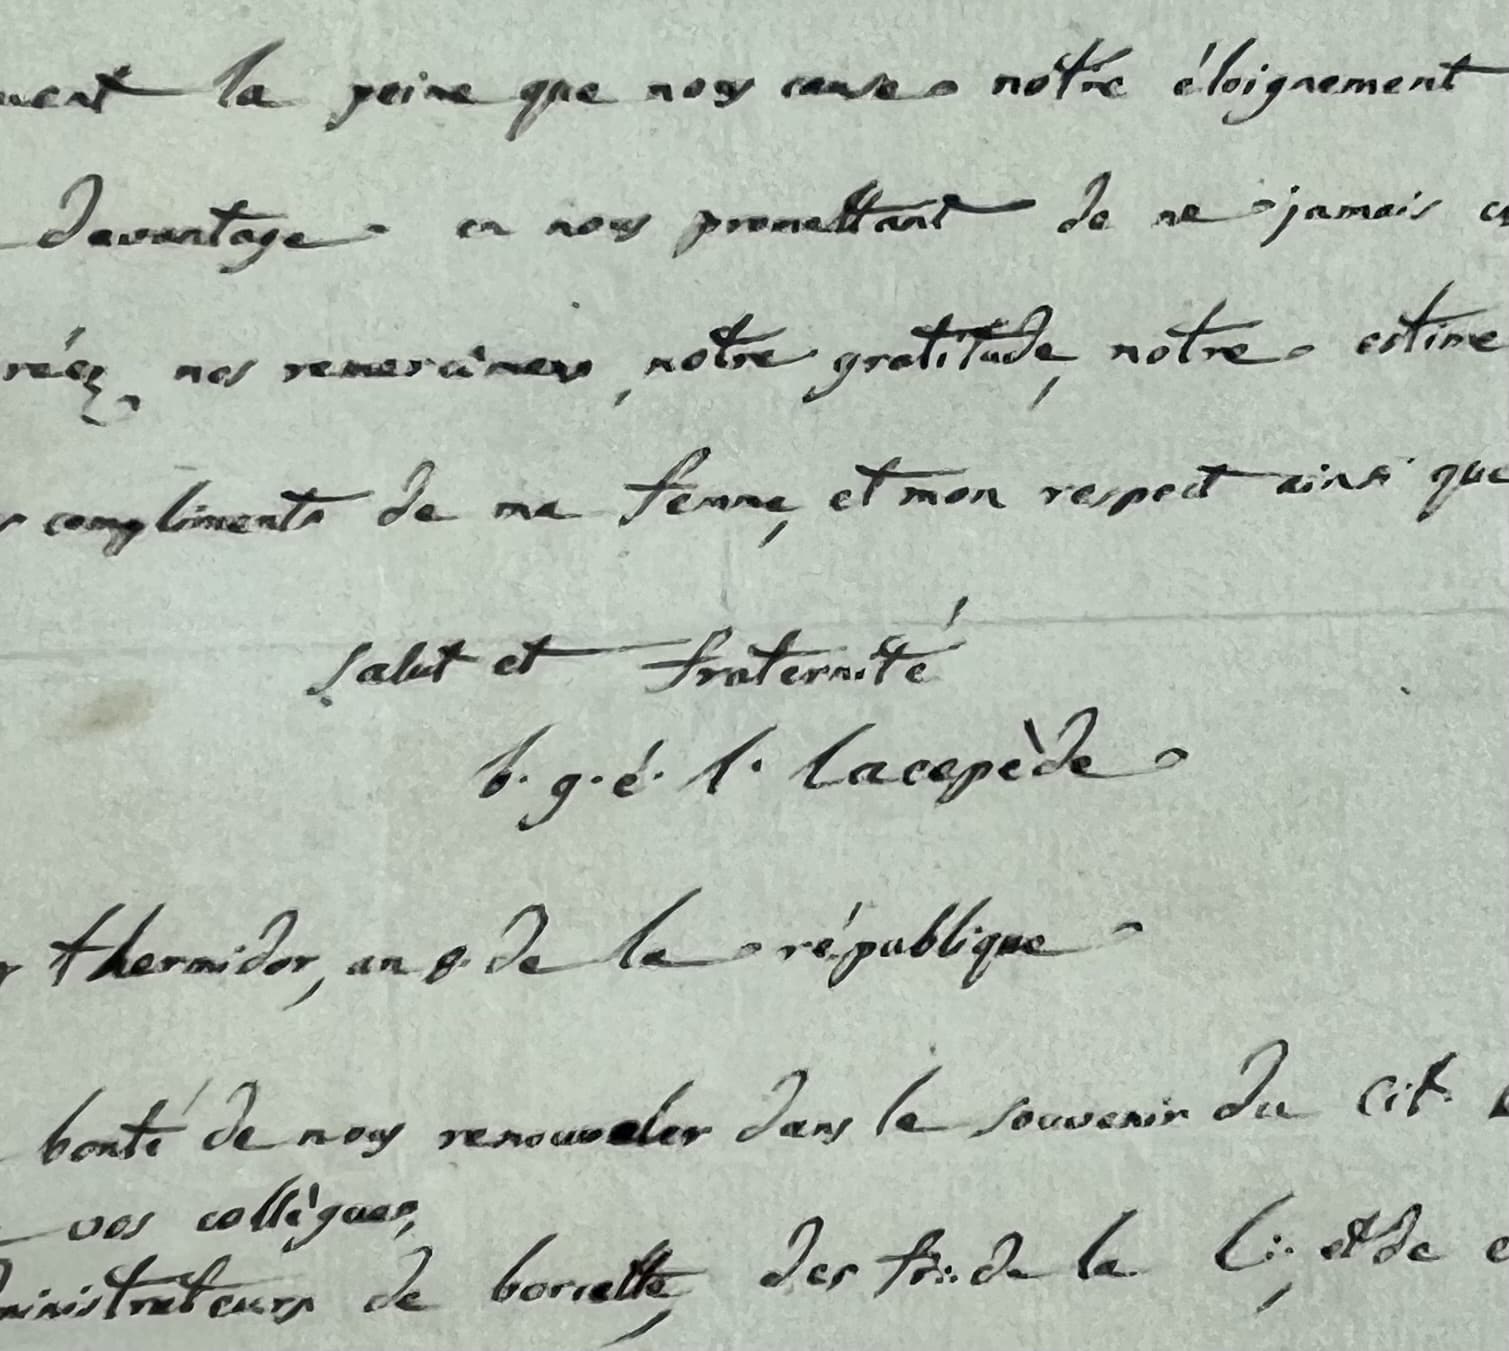 la peine que nous cause notre éloignement
davantage en nous promettant de ne jamais
nos remercimens, notre gratitude, notre estime
compliments de ma femme, et mon respect ainsi que
salut et fraternité
b. g. é. l. Lacepède
thermidor, an 8. de la république
bonté de nous renouveler dans le souvenir du Cit.
vos collègues,
de borcette, des fr∴ de la L∴, et de